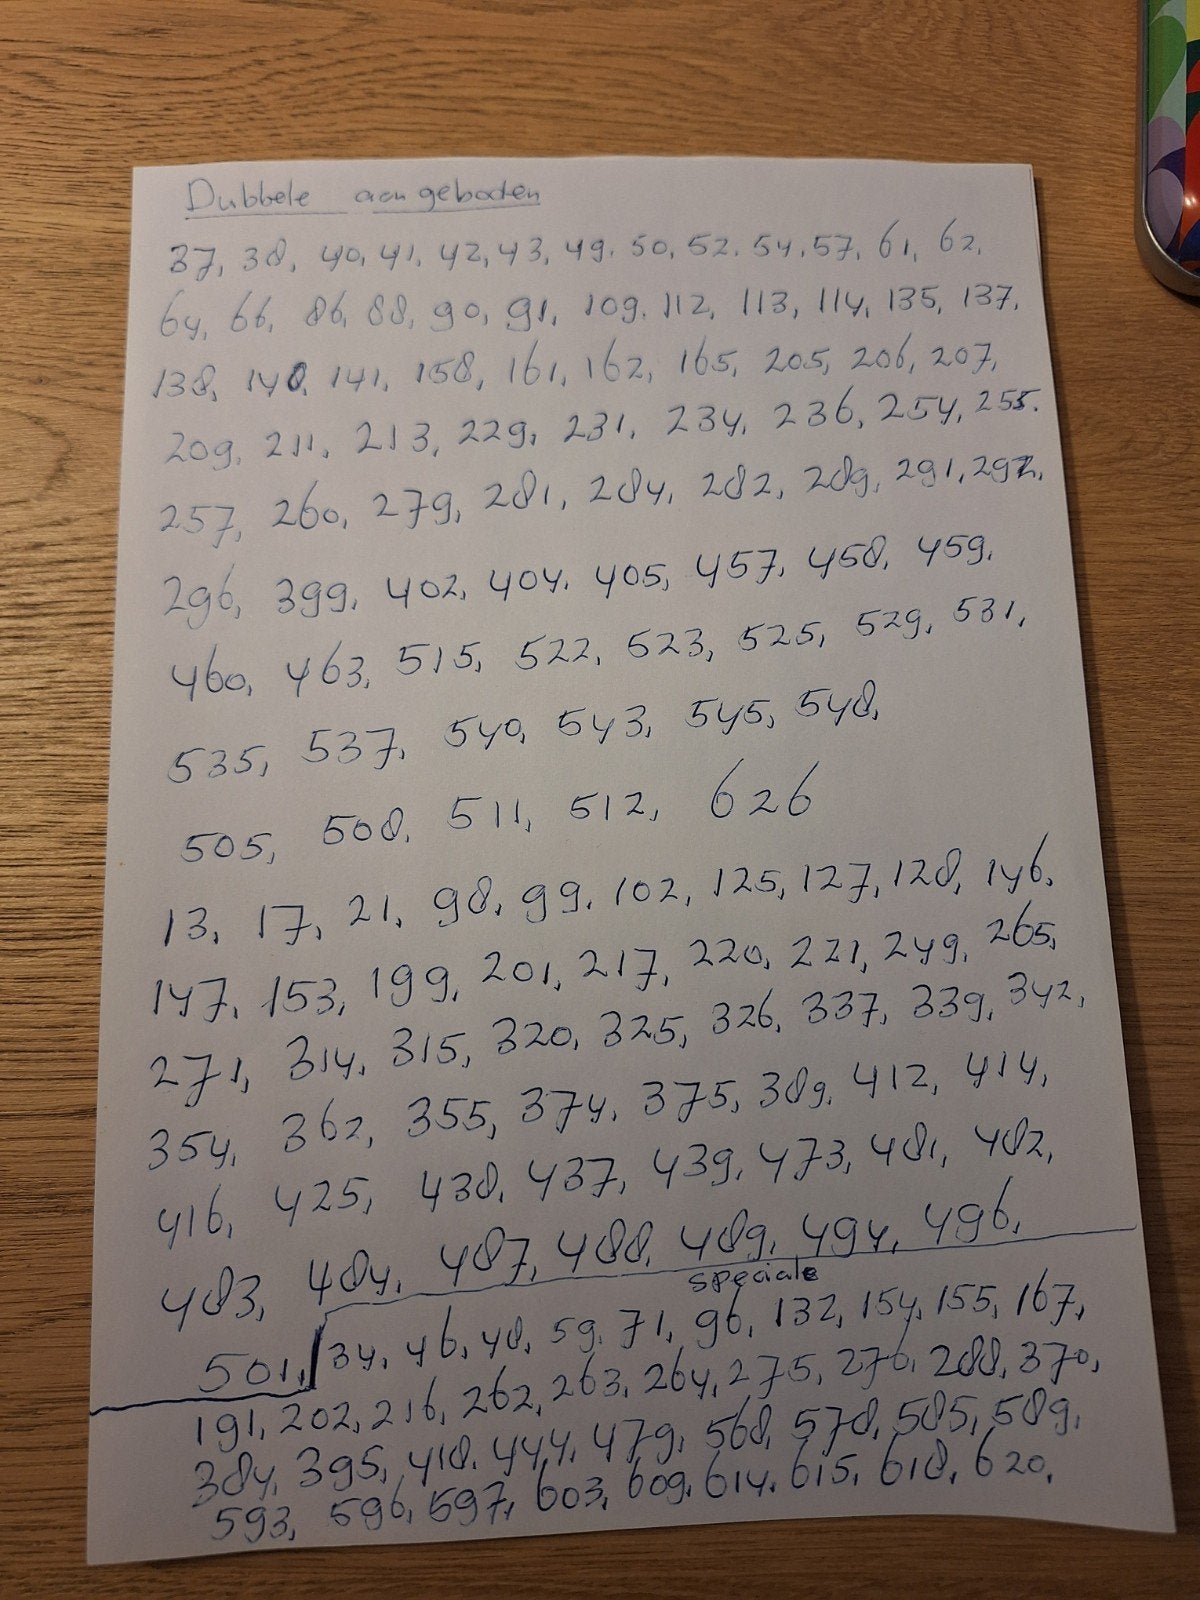 Dubbele aangeboden
37, 38, 40, 41, 42, 43, 49, 50, 52, 54, 57, 61, 62,
64, 66, 86, 88, 90, 91, 109, 112, 113, 114, 135, 137,
138, 140, 141, 158, 161, 162, 165, 205, 206, 207,
209, 211, 213, 229, 231, 234, 236, 254, 255.
257, 260, 279, 281, 284, 282, 289, 291, 292,
296, 399, 402, 404, 405, 457, 458, 459,
460, 463, 515, 522, 523, 525, 529, 531,
535, 537, 540, 543, 545, 548,
505, 508, 511, 512, 626
13, 17, 21, 98, 99, 102, 125, 127, 128, 146,
147, 153, 199, 201, 217, 220, 221, 249, 265,
271, 314, 315, 320, 325, 326, 337, 339, 342,
354, 362, 355, 374, 375, 389, 412, 414,
416, 425, 438, 437, 439, 473, 481, 482,
483, 484, 487, 488, 489, 494, 496,
speciale
501, 34, 46, 48, 59, 71, 96, 132, 154, 155, 167,
191, 202, 216, 262, 263, 264, 275, 276, 288, 370,
384, 395, 418, 444, 479, 568, 578, 585, 589,
593, 596, 597, 603, 609, 614, 615, 618, 620,